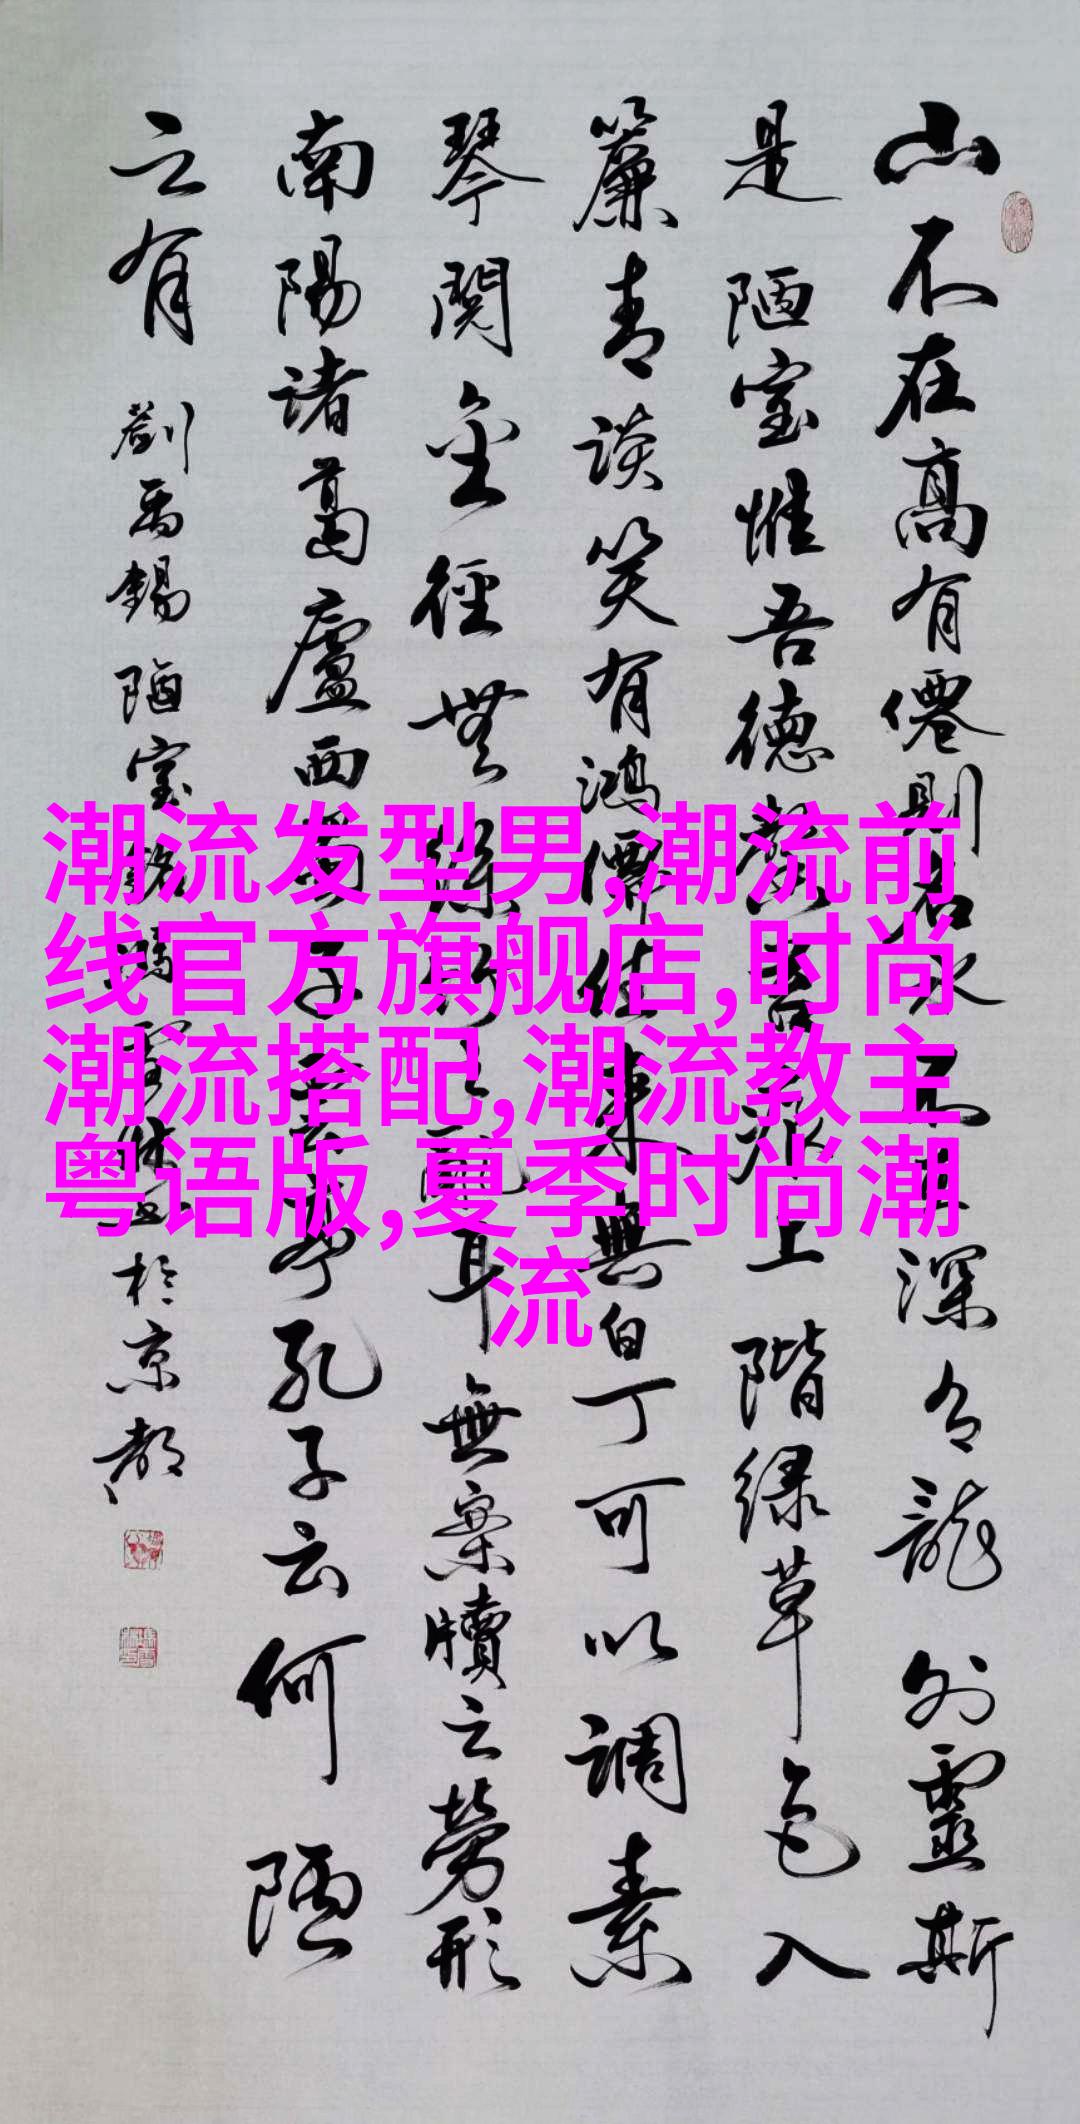 山不在高有僊則名水不在深有龍則靈斯
是陋室惟吾德馨苔痕上階緑草色入
簾青談笑有鴻儒往來無白丁可以調素
琴閱金經無絲竹之亂耳無案牘之勞形
南陽諸葛廬西蜀子雲亭孔子云何陋
之有 劉禹錫陋室銘 於京都
潮流发型男,潮流前
线官方旗舰店,时尚
潮流搭配,潮流教主
粤语版,夏季时尚潮
流